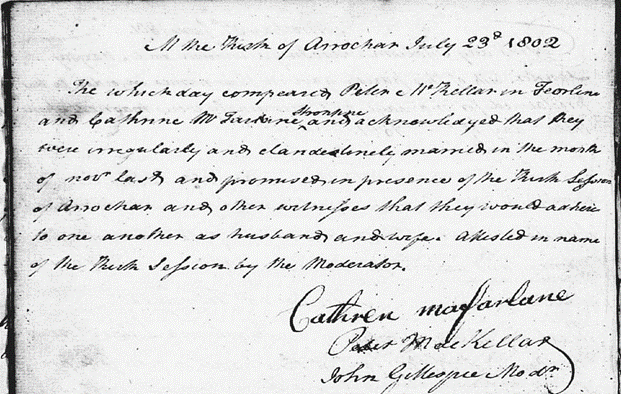 At the Kirk of Arrochar July 23d 1802
The which day compeared Peter Mc Kellar in Feorline
and Cathrine Mc Farlane Stronfine and acknowledged that they
were irregularly and clandestinely married in the month
of novr last and promised in presence of the Kirk Session
of Arrochar and other witnesses that they would adhere
to one another as husband and wife. Attested in name
of the Kirk Session by the Moderator.
Cathren macfarlane
Peter MacKellar
John Gillespie Modr